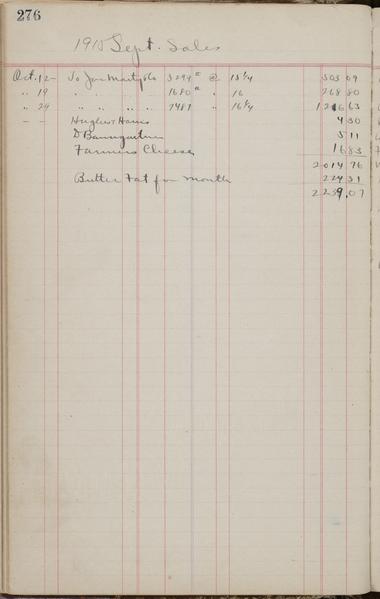 276
1915 Sept. Sales
Oct. 12 - To Jno Marty & Co 3299 # @ 15 1/4 503 09
" 19 " " " " 1680 # " 16 268 80
" 24 " " " " 7487 " 16 1/4 1216 63
- - Hughes Haus 4 30
D Baumgartner 5 11
Farmers Cheese 16 83
2014 76
Butter Fat for month 224 31
2239.07